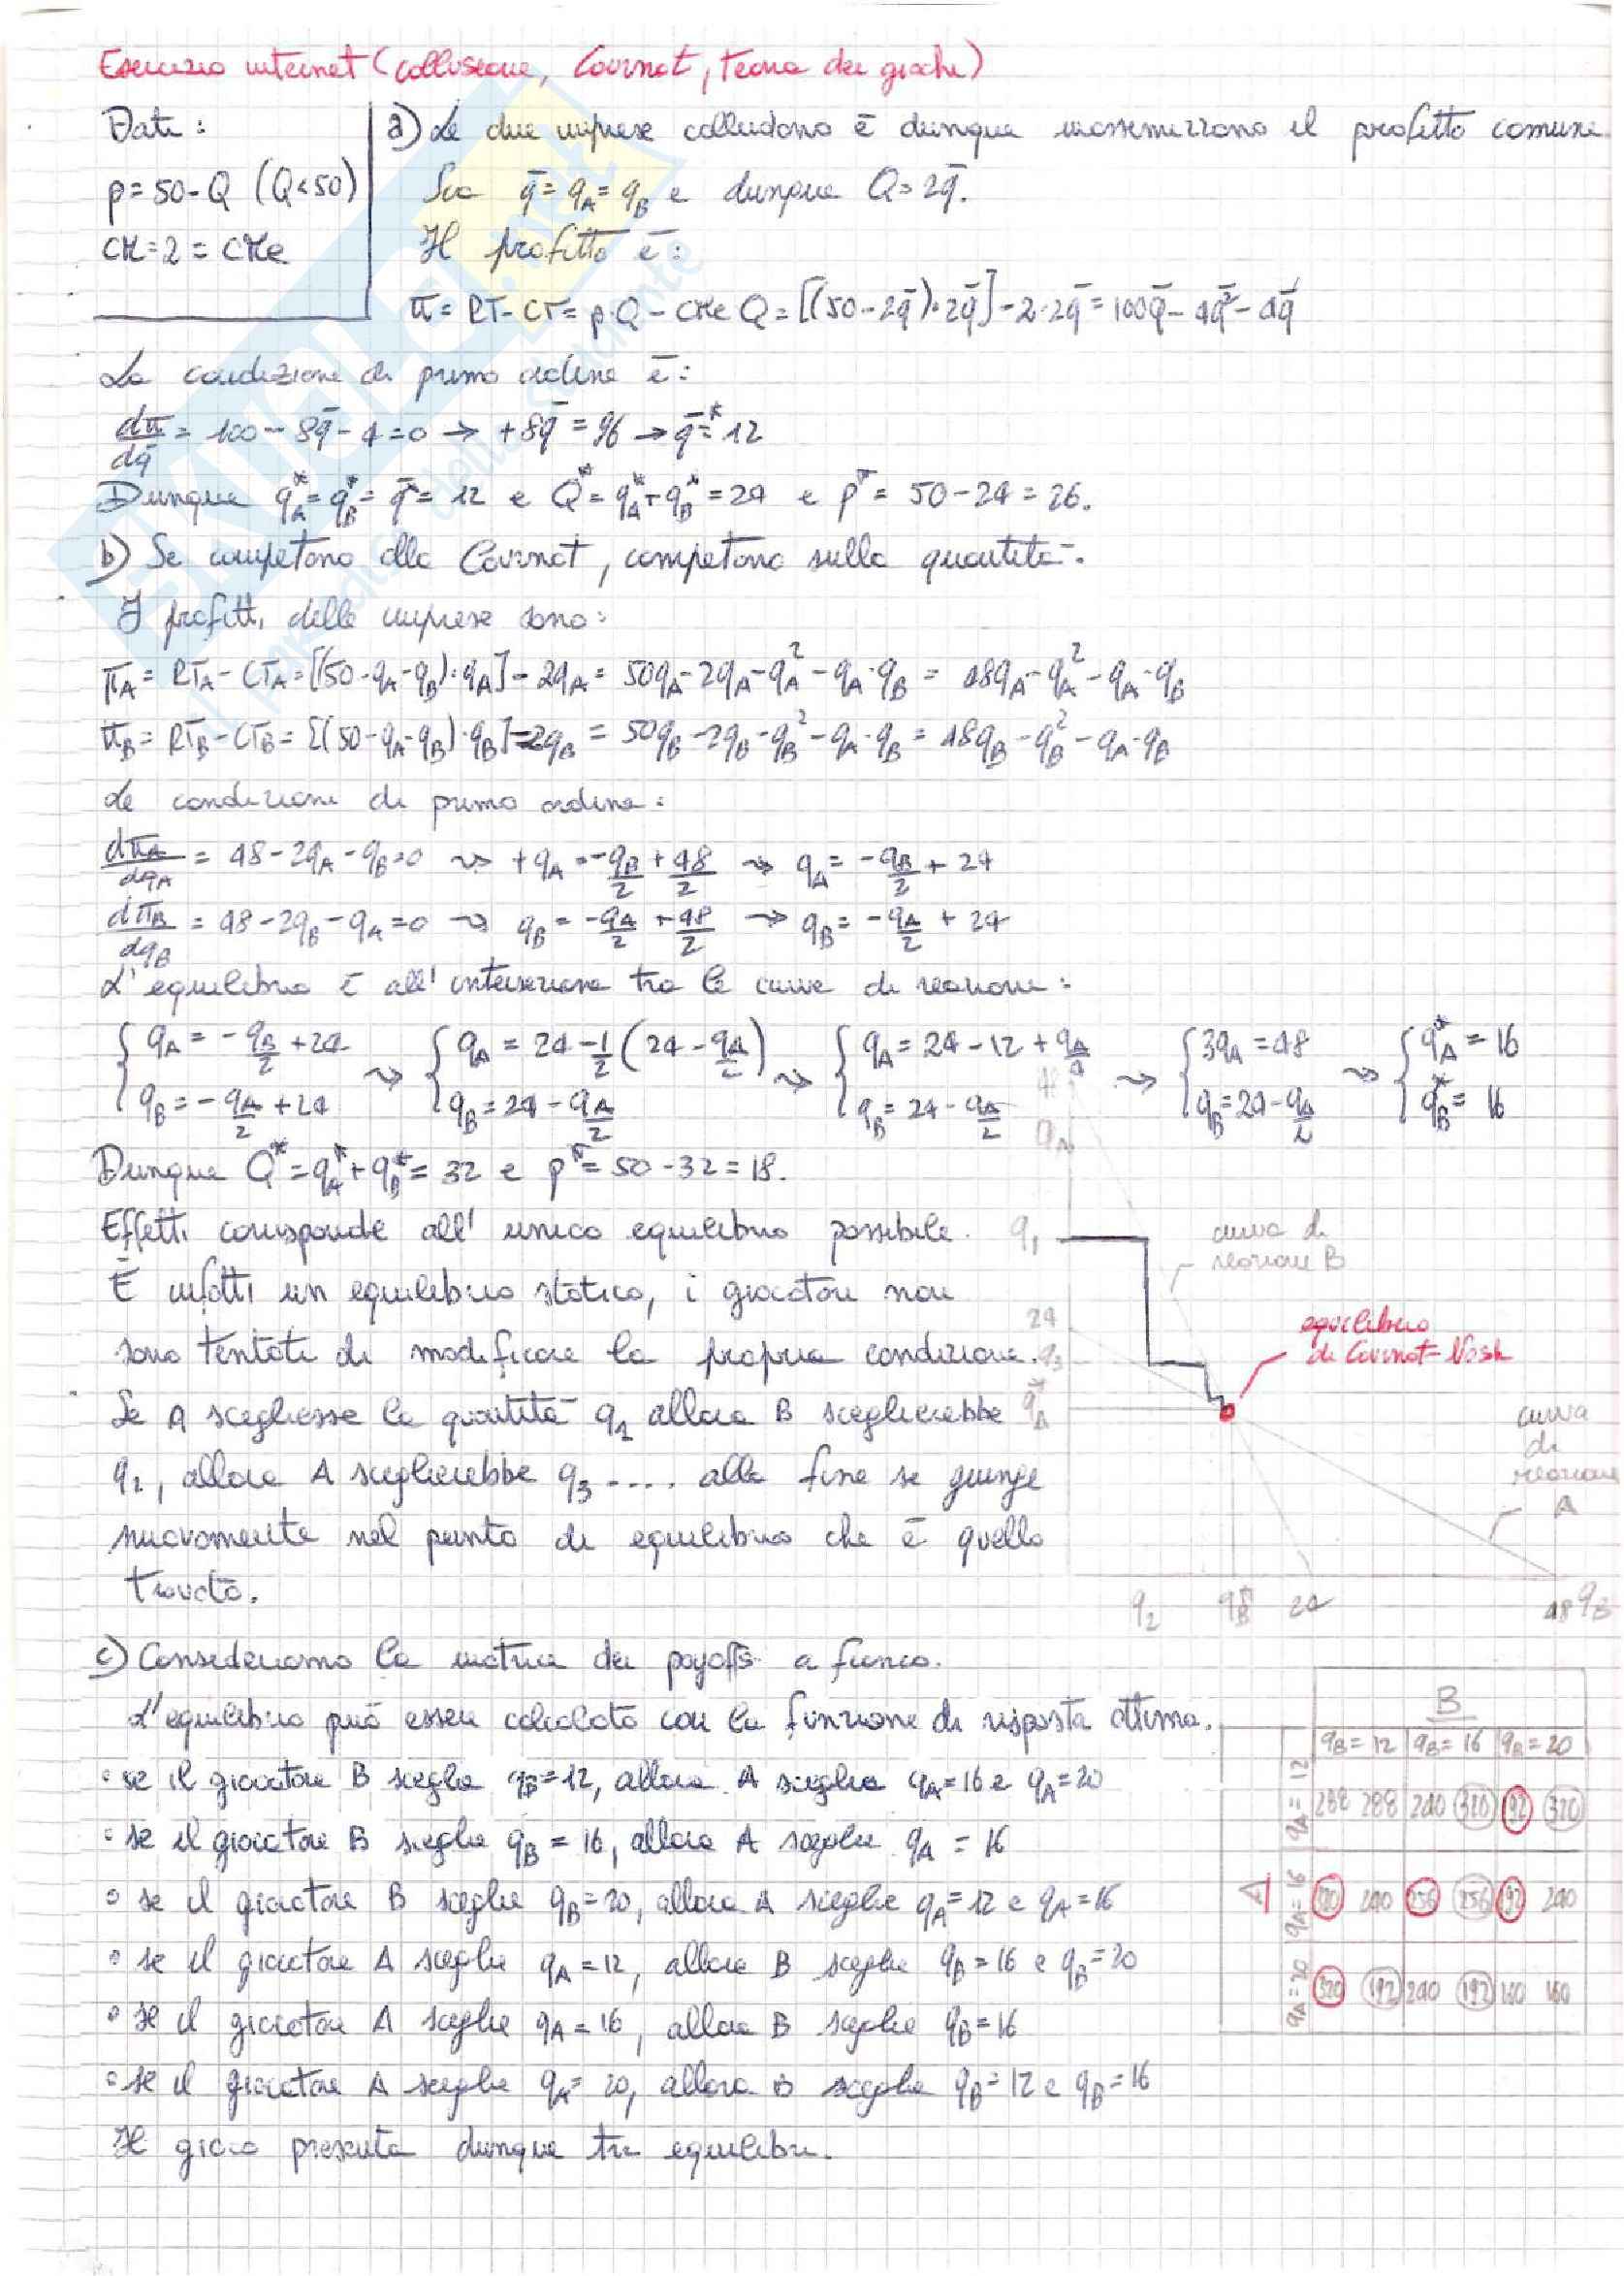 Esercizio internet (collusione, Cournot, teoria dei giochi)
Dati:
p = 50 - Q (Q<50)
CM = 2 = CMe
a) Le due imprese colludono è dunque massimizzano il profitto comune.
Sia q̄ = qA = qB e dunque Q = 2q̄.
Il profitto è:
π = RT - CT = p·Q - CMe Q = [(50 - 2q̄)·2q̄] - 2·2q̄ = 100q̄ - 4q̄² - 4q̄
La condizione di primo ordine è:
dπ/dq̄ = 100 - 8q̄ - 4 = 0 → +8q̄ = 96 → q̄* = 12
Dunque qA* = qB* = q̄ = 12 e Q* = qA* + qB* = 24 e p* = 50 - 24 = 26.
b) Se competono alla Cournot, competono sulla quantità.
I profitti delle imprese sono:
πA = RTA - CTA = [(50 - qA - qB)·qA] - 2qA = 50qA - 2qA - qA² - qA·qB = 48qA - qA² - qA·qB
πB = RTB - CTB = [(50 - qA - qB)·qB] - 2qB = 50qB - 2qB - qB² - qA·qB = 48qB - qB² - qA·qB
Le condizioni di primo ordine:
dπA/dqA = 48 - 2qA - qB = 0 ⇝ +qA = -qB/2 + 48/2 ⇝ qA = -qB/2 + 24
dπB/dqB = 48 - 2qB - qA = 0 ⇝ qB = -qA/2 + 48/2 ⇝ qB = -qA/2 + 24
L'equilibrio è all'intersezione tra le curve di reazione:
{ qA = -qB/2 + 24 ⇝ { qA = 24 - 1/2 (24 - qA/2) ⇝ { qA = 24 - 12 + qA/4 ⇝ { 3qA = 48 ⇝ { qA* = 16
{ qB = -qA/2 + 24 { qB = 24 - qA/2 { qB = 24 - qA/2 { qB = 24 - qA/2 { qB* = 16
Dunque Q* = qA* + qB* = 32 e p* = 50 - 32 = 18.
Effetti corisponde all'unico equilibrio possibile.
È infatti un equilibrio statico, i giocatori non
sono tentati di modificare la propria condizione.
Se A scegliesse la quantità q1 allora B sceglierebbe
q2, allora A sceglierebbe q3 .... alla fine se giunge
nuovamente nel punto di equilibrio che è quello
trovato.
48
qA
q1
curva di
reazione B
24
equilibrio
di Cournot-Nash
q3
qA*
curva
di
reazione
A
q2 qB* 24 48 qB
c) Consideriamo la matrice dei payoffs a fianco.
L'equilibrio può essere calcolato con la funzione di risposta ottima.
• se il giocatore B sceglie qB = 12, allora A sceglie qA = 16 e qA = 20
• se il giocatore B sceglie qB = 16, allora A sceglie qA = 16
• se il giocatore B sceglie qB = 20, allora A sceglie qA = 12 e qA = 16
• se il giocatore A sceglie qA = 12, allora B sceglie qB = 16 e qB = 20
• se il giocatore A sceglie qA = 16, allora B sceglie qB = 16
• se il giocatore A sceglie qA = 20, allora B sceglie qB = 12 e qB = 16
Il gioco presenta dunque tre equilibri.
B
qB = 12 qB = 16 qB = 20
A
qA = 12 288 288 240 320 192 320
qA = 16 320 240 256 256 192 240
qA = 20 320 192 240 192 160 160